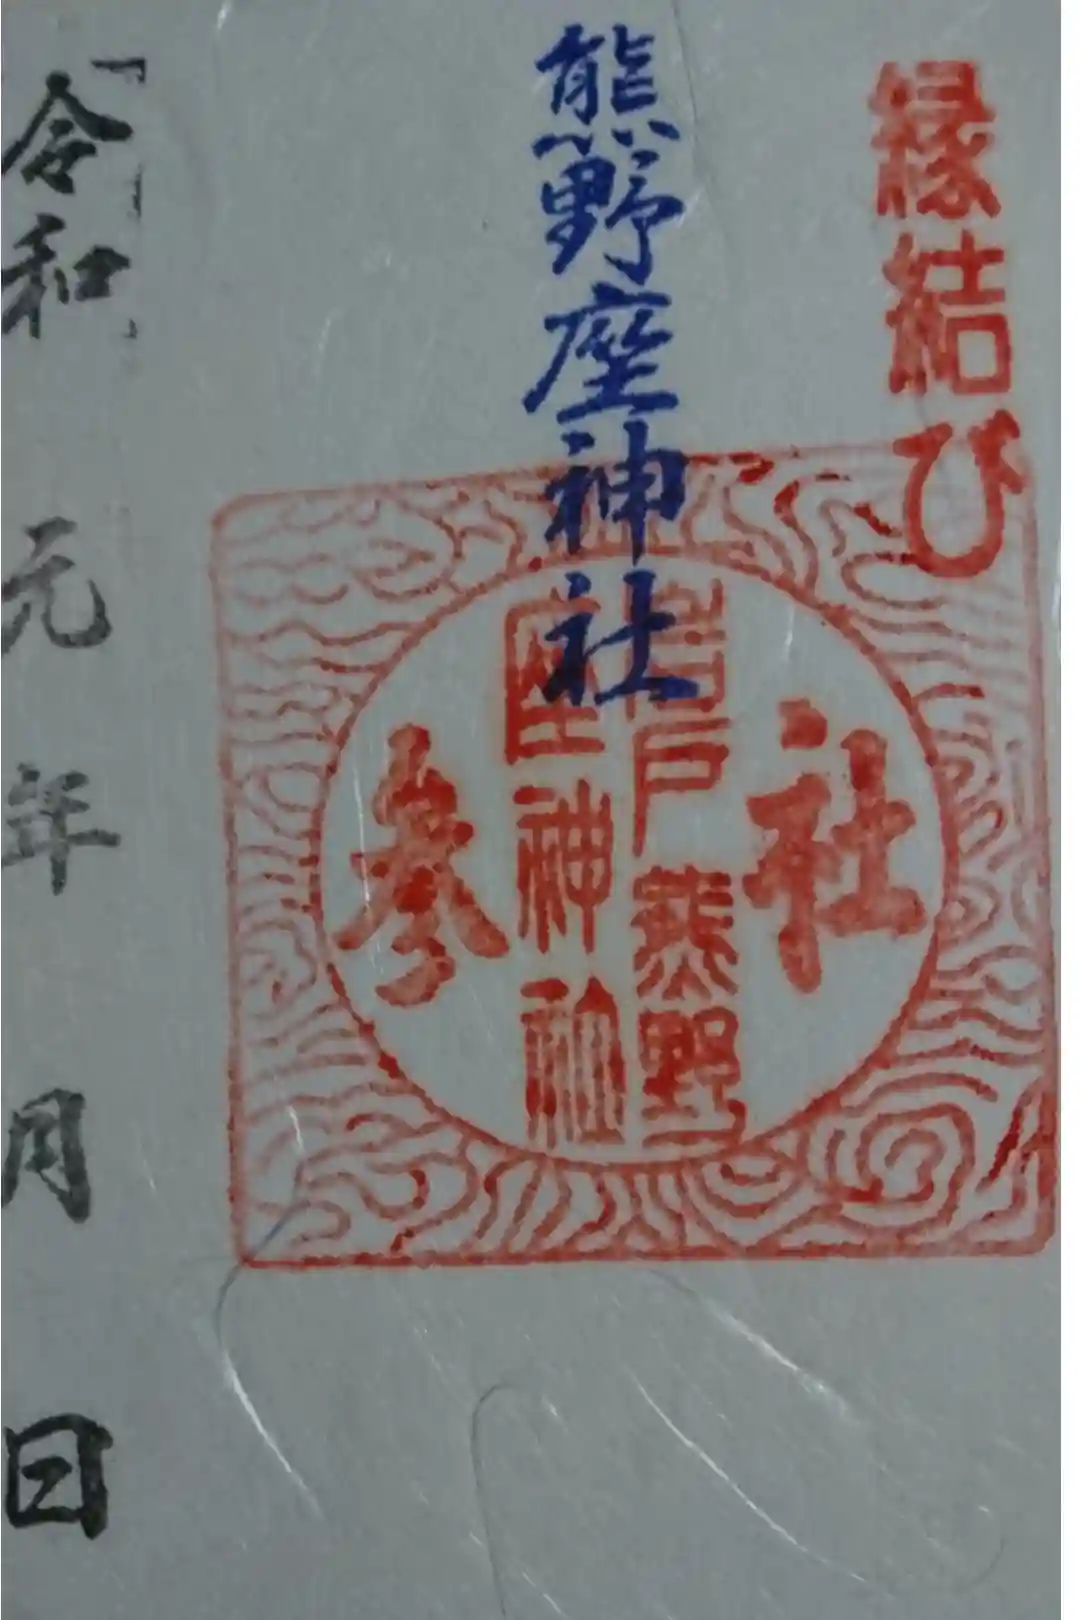 縁結び
熊野座神社
社
岩戸熊野
座神社
参
令和 元 年 月 日